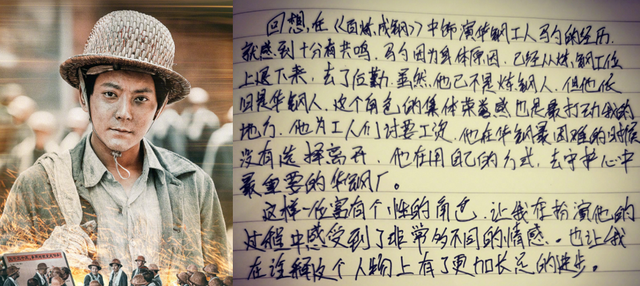 回想在《百炼成钢》中饰演华钢工人马勺的经历,
就感到十分有共鸣,马勺因为身体原因,已经从炼钢工位
上退下来,去了后勤,虽然他已不是炼钢人,但他依
旧是华钢人,这个角色的集体荣誉感也是最打动我的
地方,他为工人们讨要工资,他在华钢最困难的时候
没有选择离开,他在用自己的方式,去守护心中
最重要的华钢厂。
这样一位富有个性的角色,让我在扮演他的
过程中感受到了非常多不同的情感。也让我
在诠释这个人物上有了更加长足的进步。